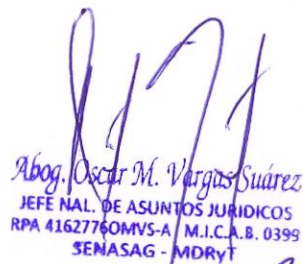 Abog. Oscar M. Vargas Suárez
JEFE NAL. DE ASUNTOS JURIDICOS
RPA 4162776OMVS-A M.I.C.A.B. 0399
SENASAG - MDRyT